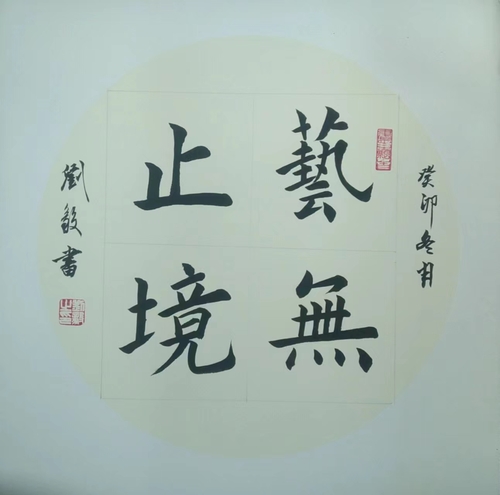 癸卯冬月
藝無
止境
劉毅書